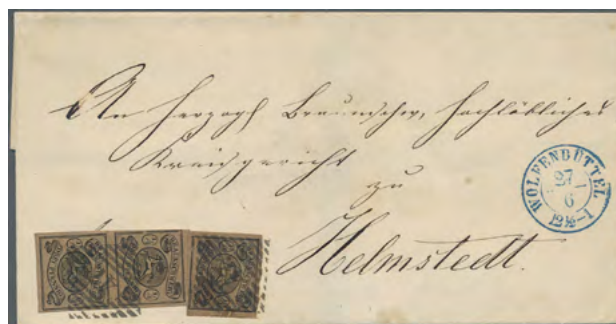 An Herzogl Braunschw, hochlöbliches
Kreisgericht
zu
Helmstedt.
WOLFENBÜTTEL
27
6
12½-1